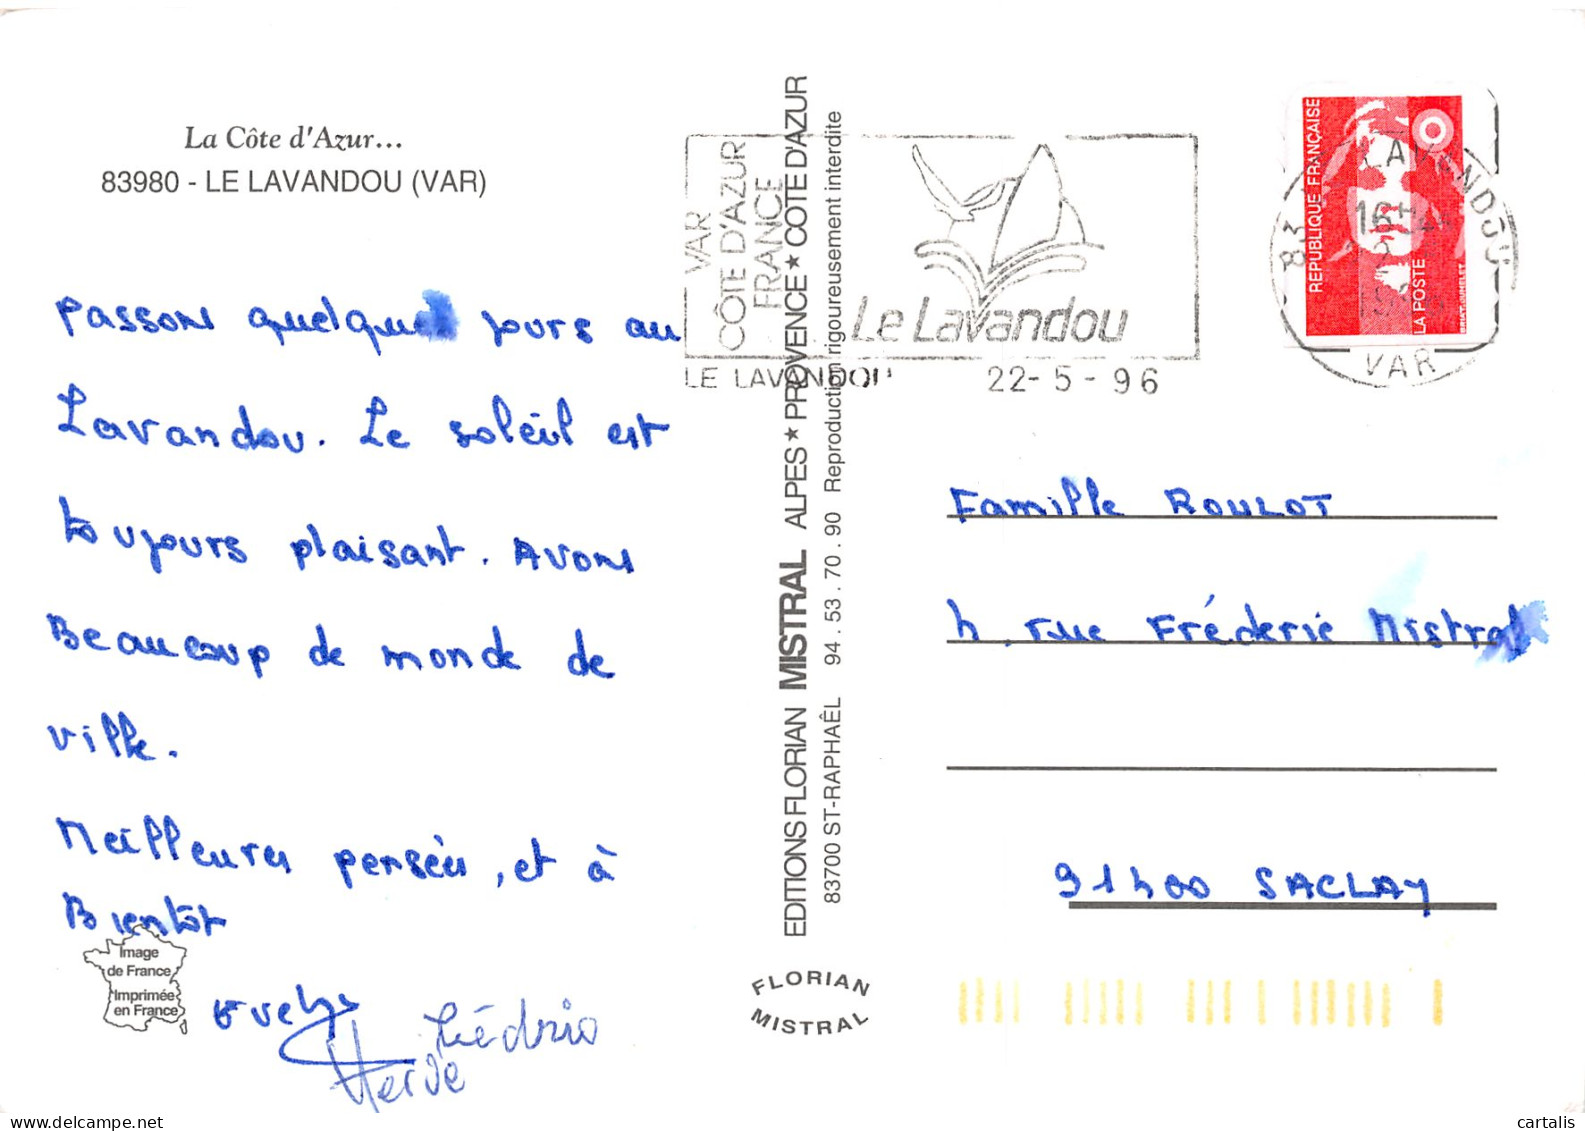 La Côte d'Azur...
83980 - LE LAVANDOU (VAR)
Passons quelques jours au
Lavandou. Le soleil est
toujours plaisant. Avons
Beaucoup de monde de
ville.
Meilleures pensées, et à
Bientôt
Evelyne
Cédric
Hervé
Image
de France
Imprimée
en France
EDITIONS FLORIAN MISTRAL ALPES ★ PROVENCE ★ COTE D'AZUR
83700 ST-RAPHAËL 94.53.70.90 Reproduction rigoureusement interdite
FLORIAN
MISTRAL
VAR
CÔTE D'AZUR
FRANCE
Le Lavandou
LE LAVANDOU 22-5-96
83 LE LAVANDOU
16H
VAR
REPUBLIQUE FRANÇAISE
LA POSTE
Famille ROULOT
4, rue Frédéric Mistral
91400 SACLAY
cartalis